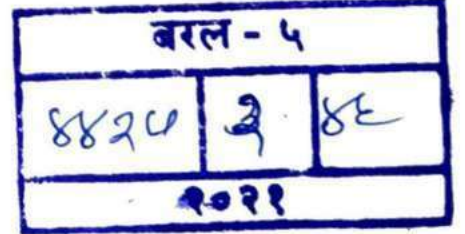 बरल - ५
४४२५ २ ४६
२०२१